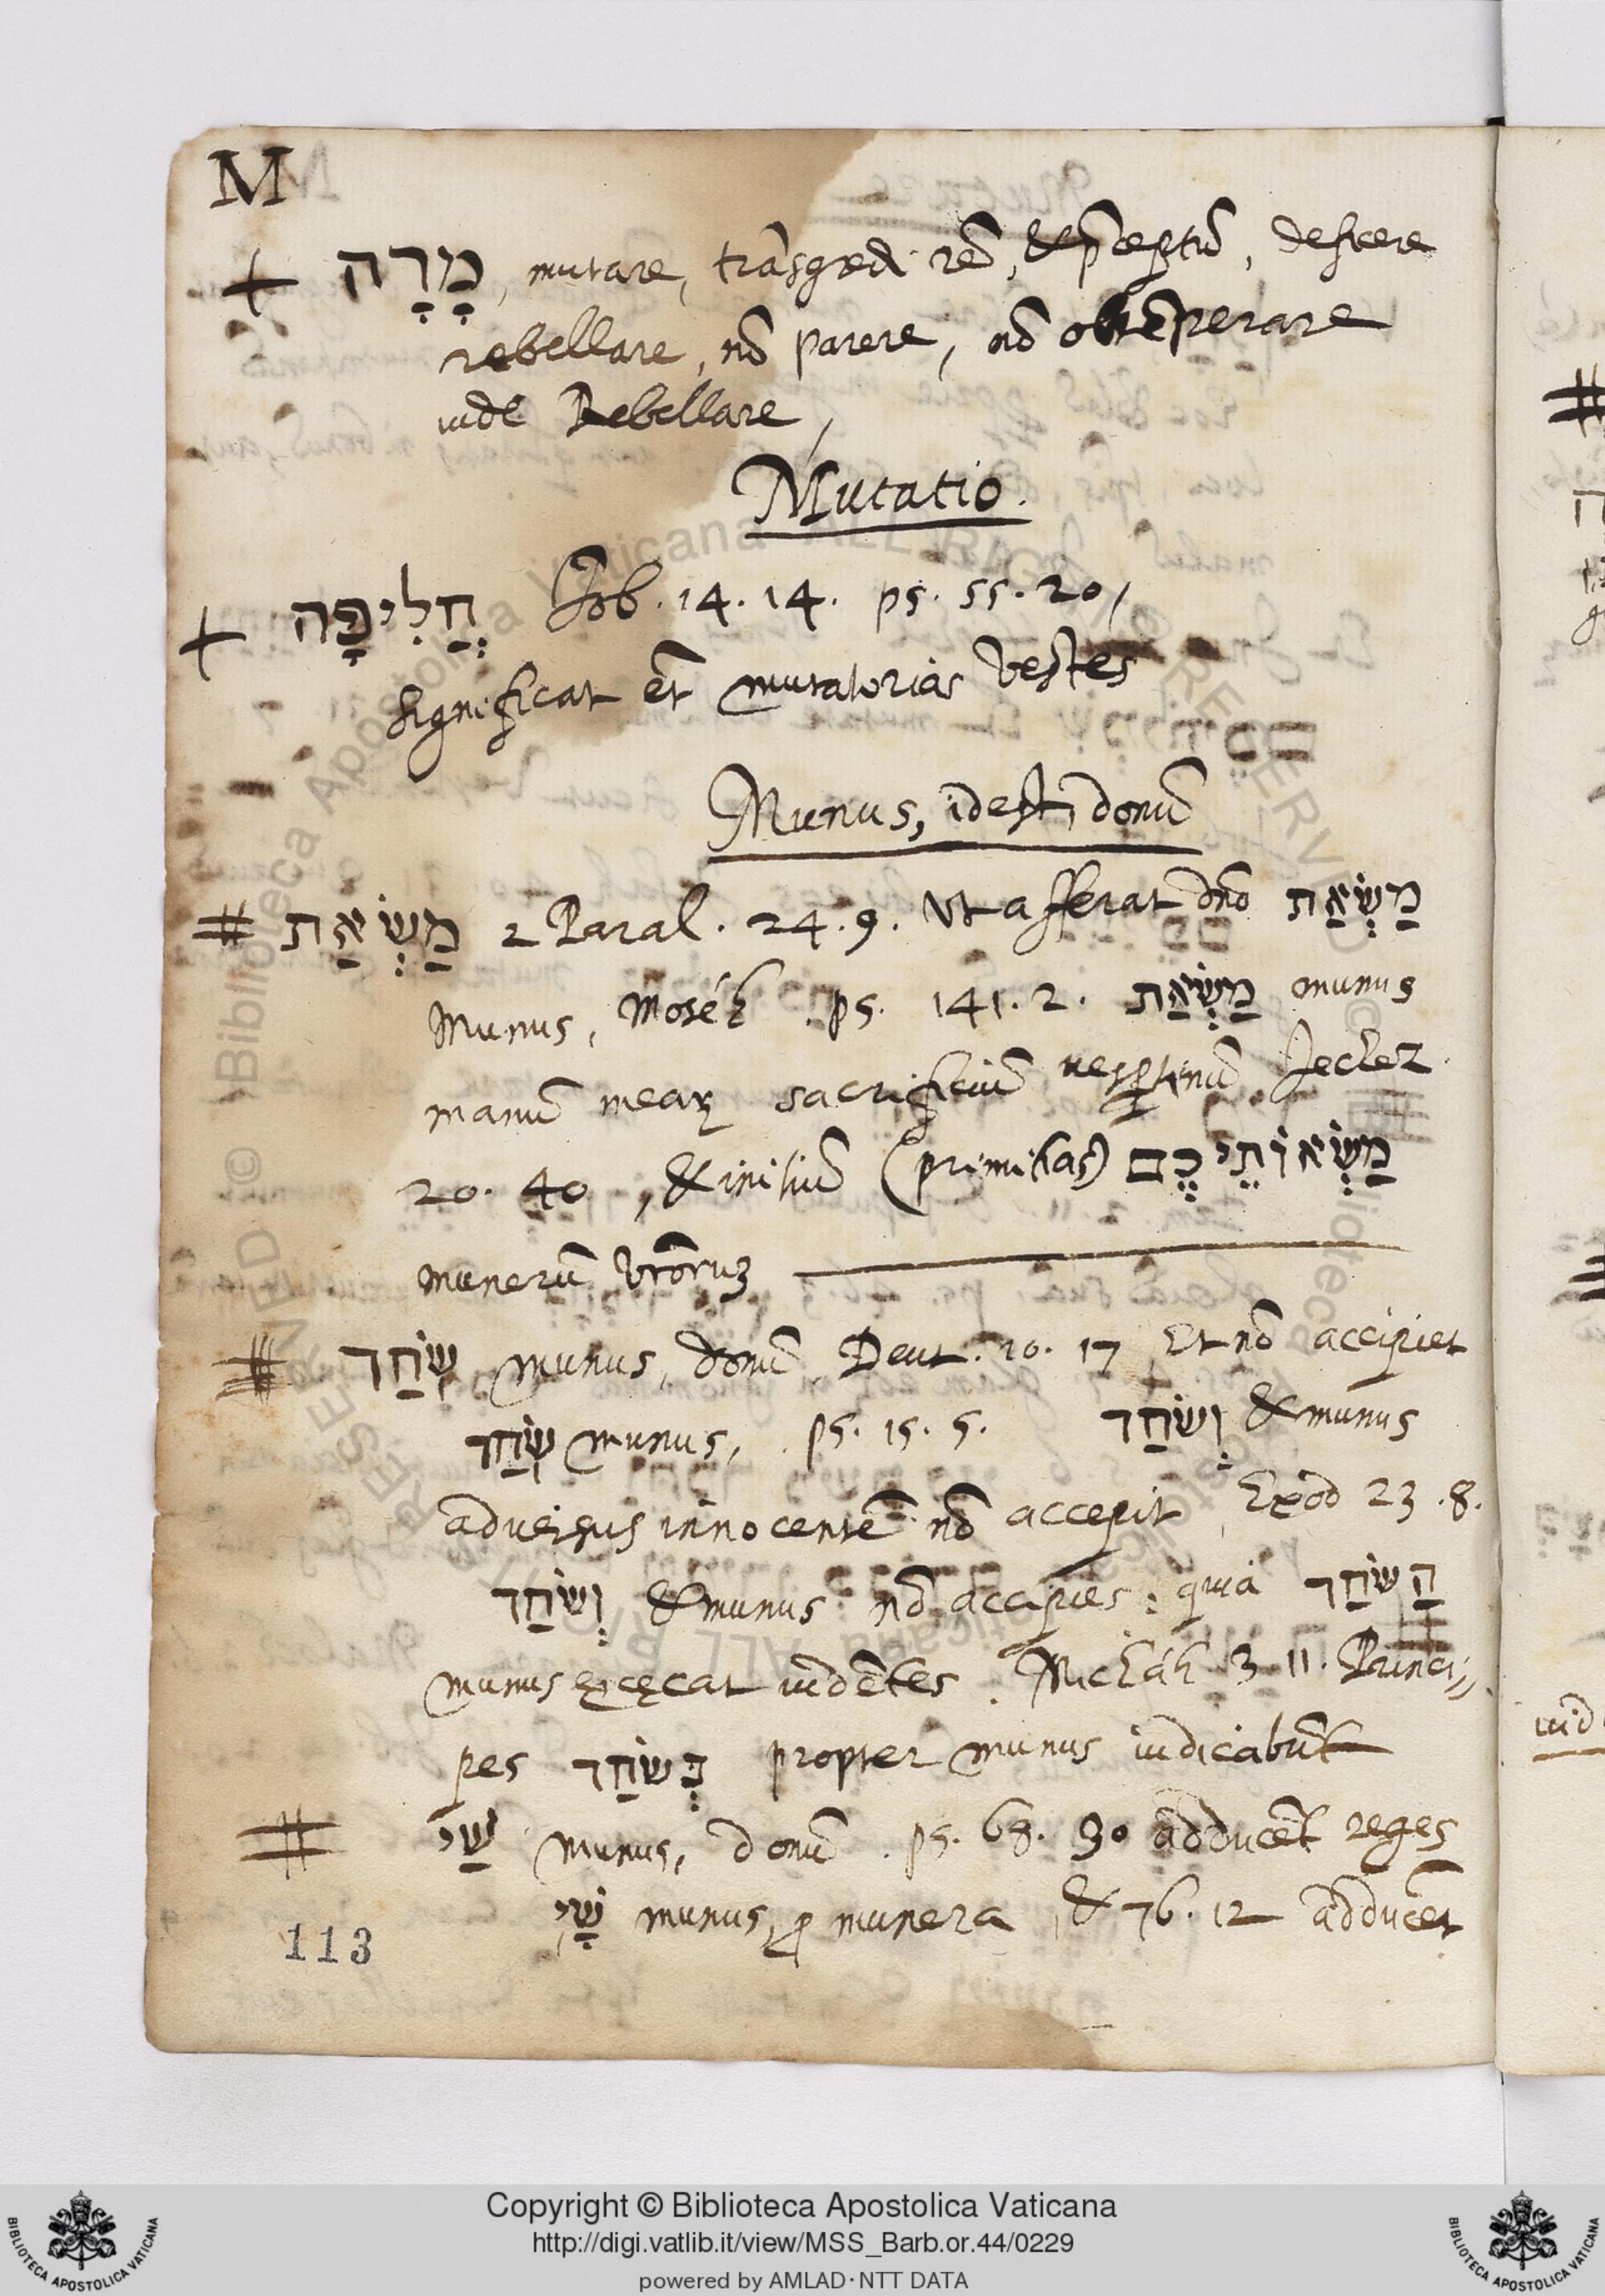 M
+ מָרָה, mutare, trãsgredi rẽ, & p̃ceptũ, deficere
rebellare, nõ parere, nõ obtẽperare
uidẽ Rebellare,
Mutatio.
+ חֲלִיפָּה Job. 14. 14. ps. 55. 20,
significat et̃ mutatorias vestes
Munus, idest, donũ
# מַשְׂאַת 2 Paral. 24. 9. Vt afferat dño מַשְׂאַת
Munus, Moséh. ps. 141. 2. מַשְׂאַת munus
manuũ mearꝝ sacrificiũ uesꝑtinũ Jechez
20. 40, & initiũ (primitias) מַשְׂאוֹתֵיכֶם
munerũ vr̃oruʒ
# שֹׁחַד munus, donũ, Deut. 10. 17 Et nõ accipiet
שֹׁחַד munus, ps. 15. 5. וְשֹׁחַד & munus
aduersus innocentẽ nõ accepit, Exod 23. 8.
וְשֹׁחַד & munus nõ accipies: quia הַשֹּׁחַד
munus excęcat uidẽtes. Micháh 3 11. Princi,,
pes בְּשֹׁחַד propter munus iudicabũt
# שַׁי munus, donũ. ps. 68. 30 adducẽt reges
שָׁי munus, ꝓ munera, & 76. 12 adducẽt
113
uid
Copyright © Biblioteca Apostolica Vaticana
http://digi.vatlib.it/view/MSS_Barb.or.44/0229
powered by AMLAD·NTT DATA
BIBLIOTECA APOSTOLICA VATICANA
BIBLIOTECA APOSTOLICA VATICANA